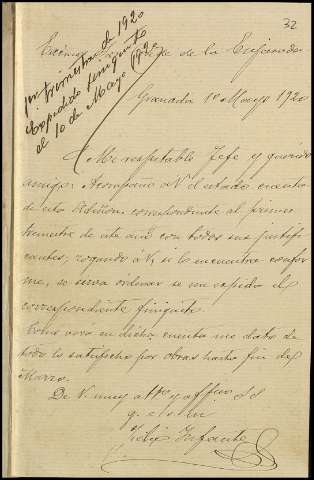 32
pr trimestre de 1920
Expedido finiquito
el 10 de Mayo 1920
Excmo de la Ensenada
Granada 1º Mayo 1920
Mi respetable Jefe y querido
amigo: Acompaño a V. el estado cuenta
de esta Admon. correspondiente al primer
trimestre de este año con todos sus justifi-
cantes; rogando a V., si lo encuentra confor-
me, se sirva ordenar se me expida el
correspondiente finiquito.
Como vera en dicha cuenta me dato de
todo lo satisfecho por obras hasta fin de
Marzo.
De V. muy atto y affmo S S
q. e. s. m
Felix Infante